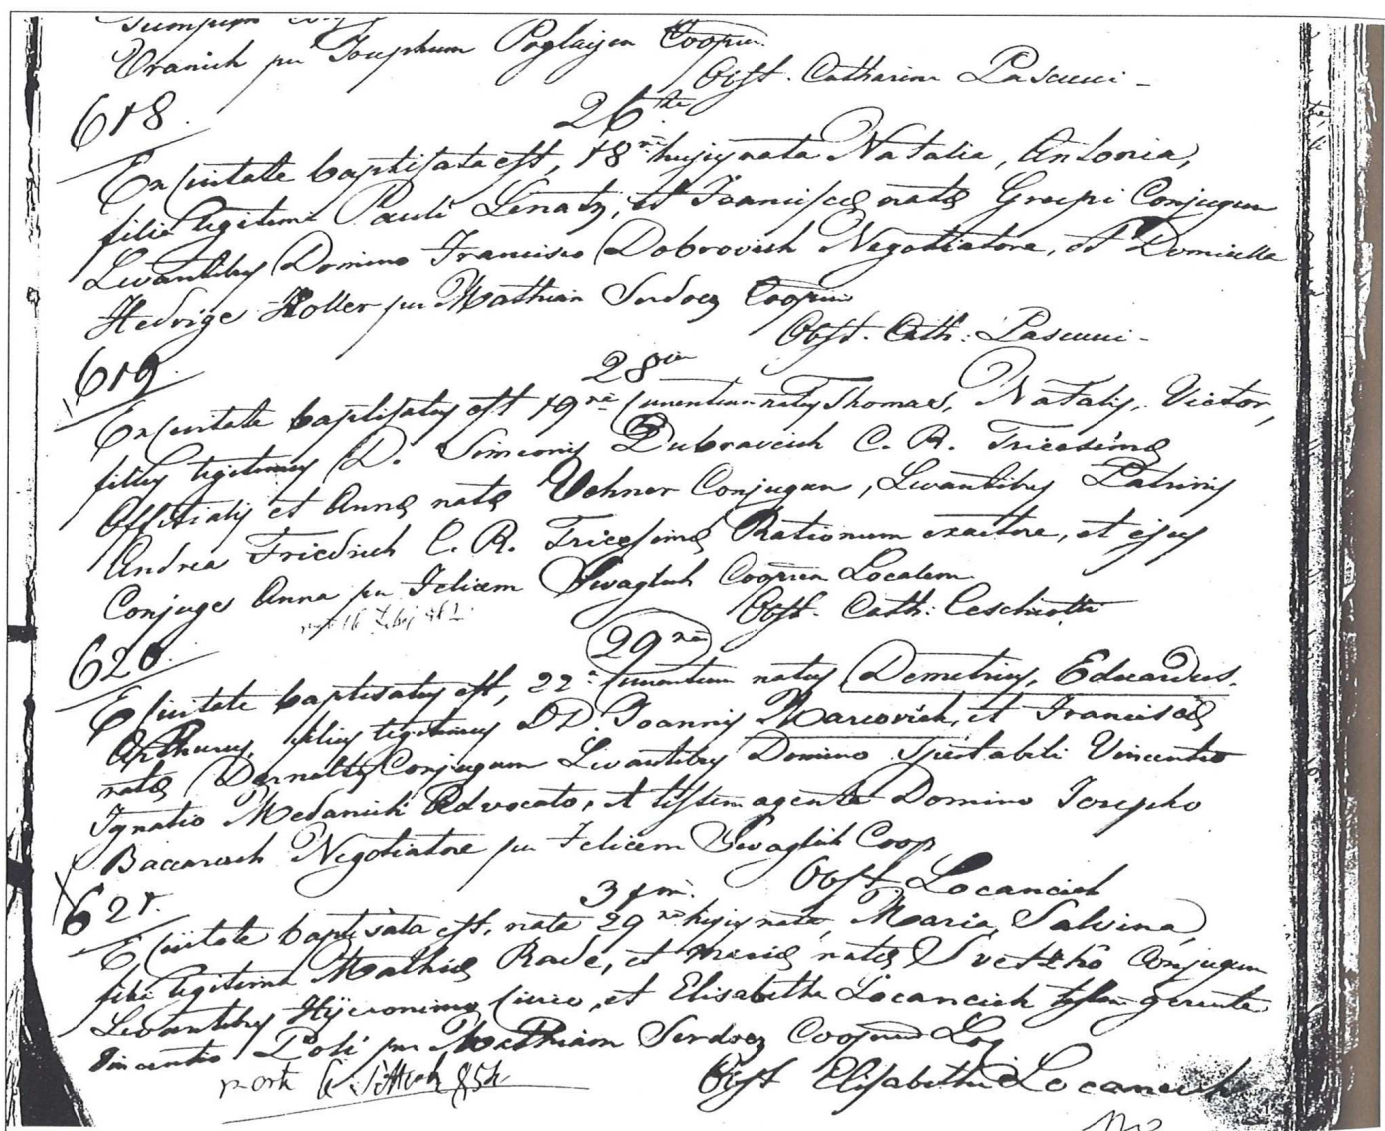 Vranich per Josephum Poglayen Cooprem
Obst. Catharina Pascucci -
618.
26ta
Ex Civitate baptisata est, 18va hujus nata Natalia, Antonia,
filia legitima Pauli Lenatz, et Franciscæ natæ Conjugum
Levantibus Domino Francisco Dobrovich Negotiatore, et Domicella
Hedvige Holler per Mathiam Serdoz Cooprem
Obst. Cath: Pascucci -
619
28va
Ex Civitate baptisatus est 19na currentium natus Thomas, Natalis, Victor,
filius legitimus D. Simeonis Dubravcich C. R. Tricesimæ
Officialis et Annæ natæ Conjugum, Levantibus Patrinis
Andrea Friedrich C. R. Tricesimæ Rationum exactore, et ejus
Conjuge Anna per Felicem Swaglich Cooprem Localem
Obst. Cath: Ceschiotti
620.
29na
E Civitate baptisatus est, 22a currentium natus Demetrius, Eduardus,
Arthurus, filius legitimus DD. Joannis Marcovich, et Franciscæ
natæ Conjugum Levantibus Domino Spectabili Vincentio
Ignatio Medanich Advocato, et Domino Josepho
Baccarcich Negotiatore per Felicem Swaglich Coop
Obst Locancich
621.
31mi.
E Civitate baptisata est, nata 29na hujus nata, Maria, Salvina,
filia legitima Mathiæ Rade, et Mariæ natæ Conjugum
Levantibus Hyeronimo et Elisabetha Locancich gerente
Vincentio Poli per Mathiam Serdoz Cooprem Loc
Obst Elisabetha Locancich